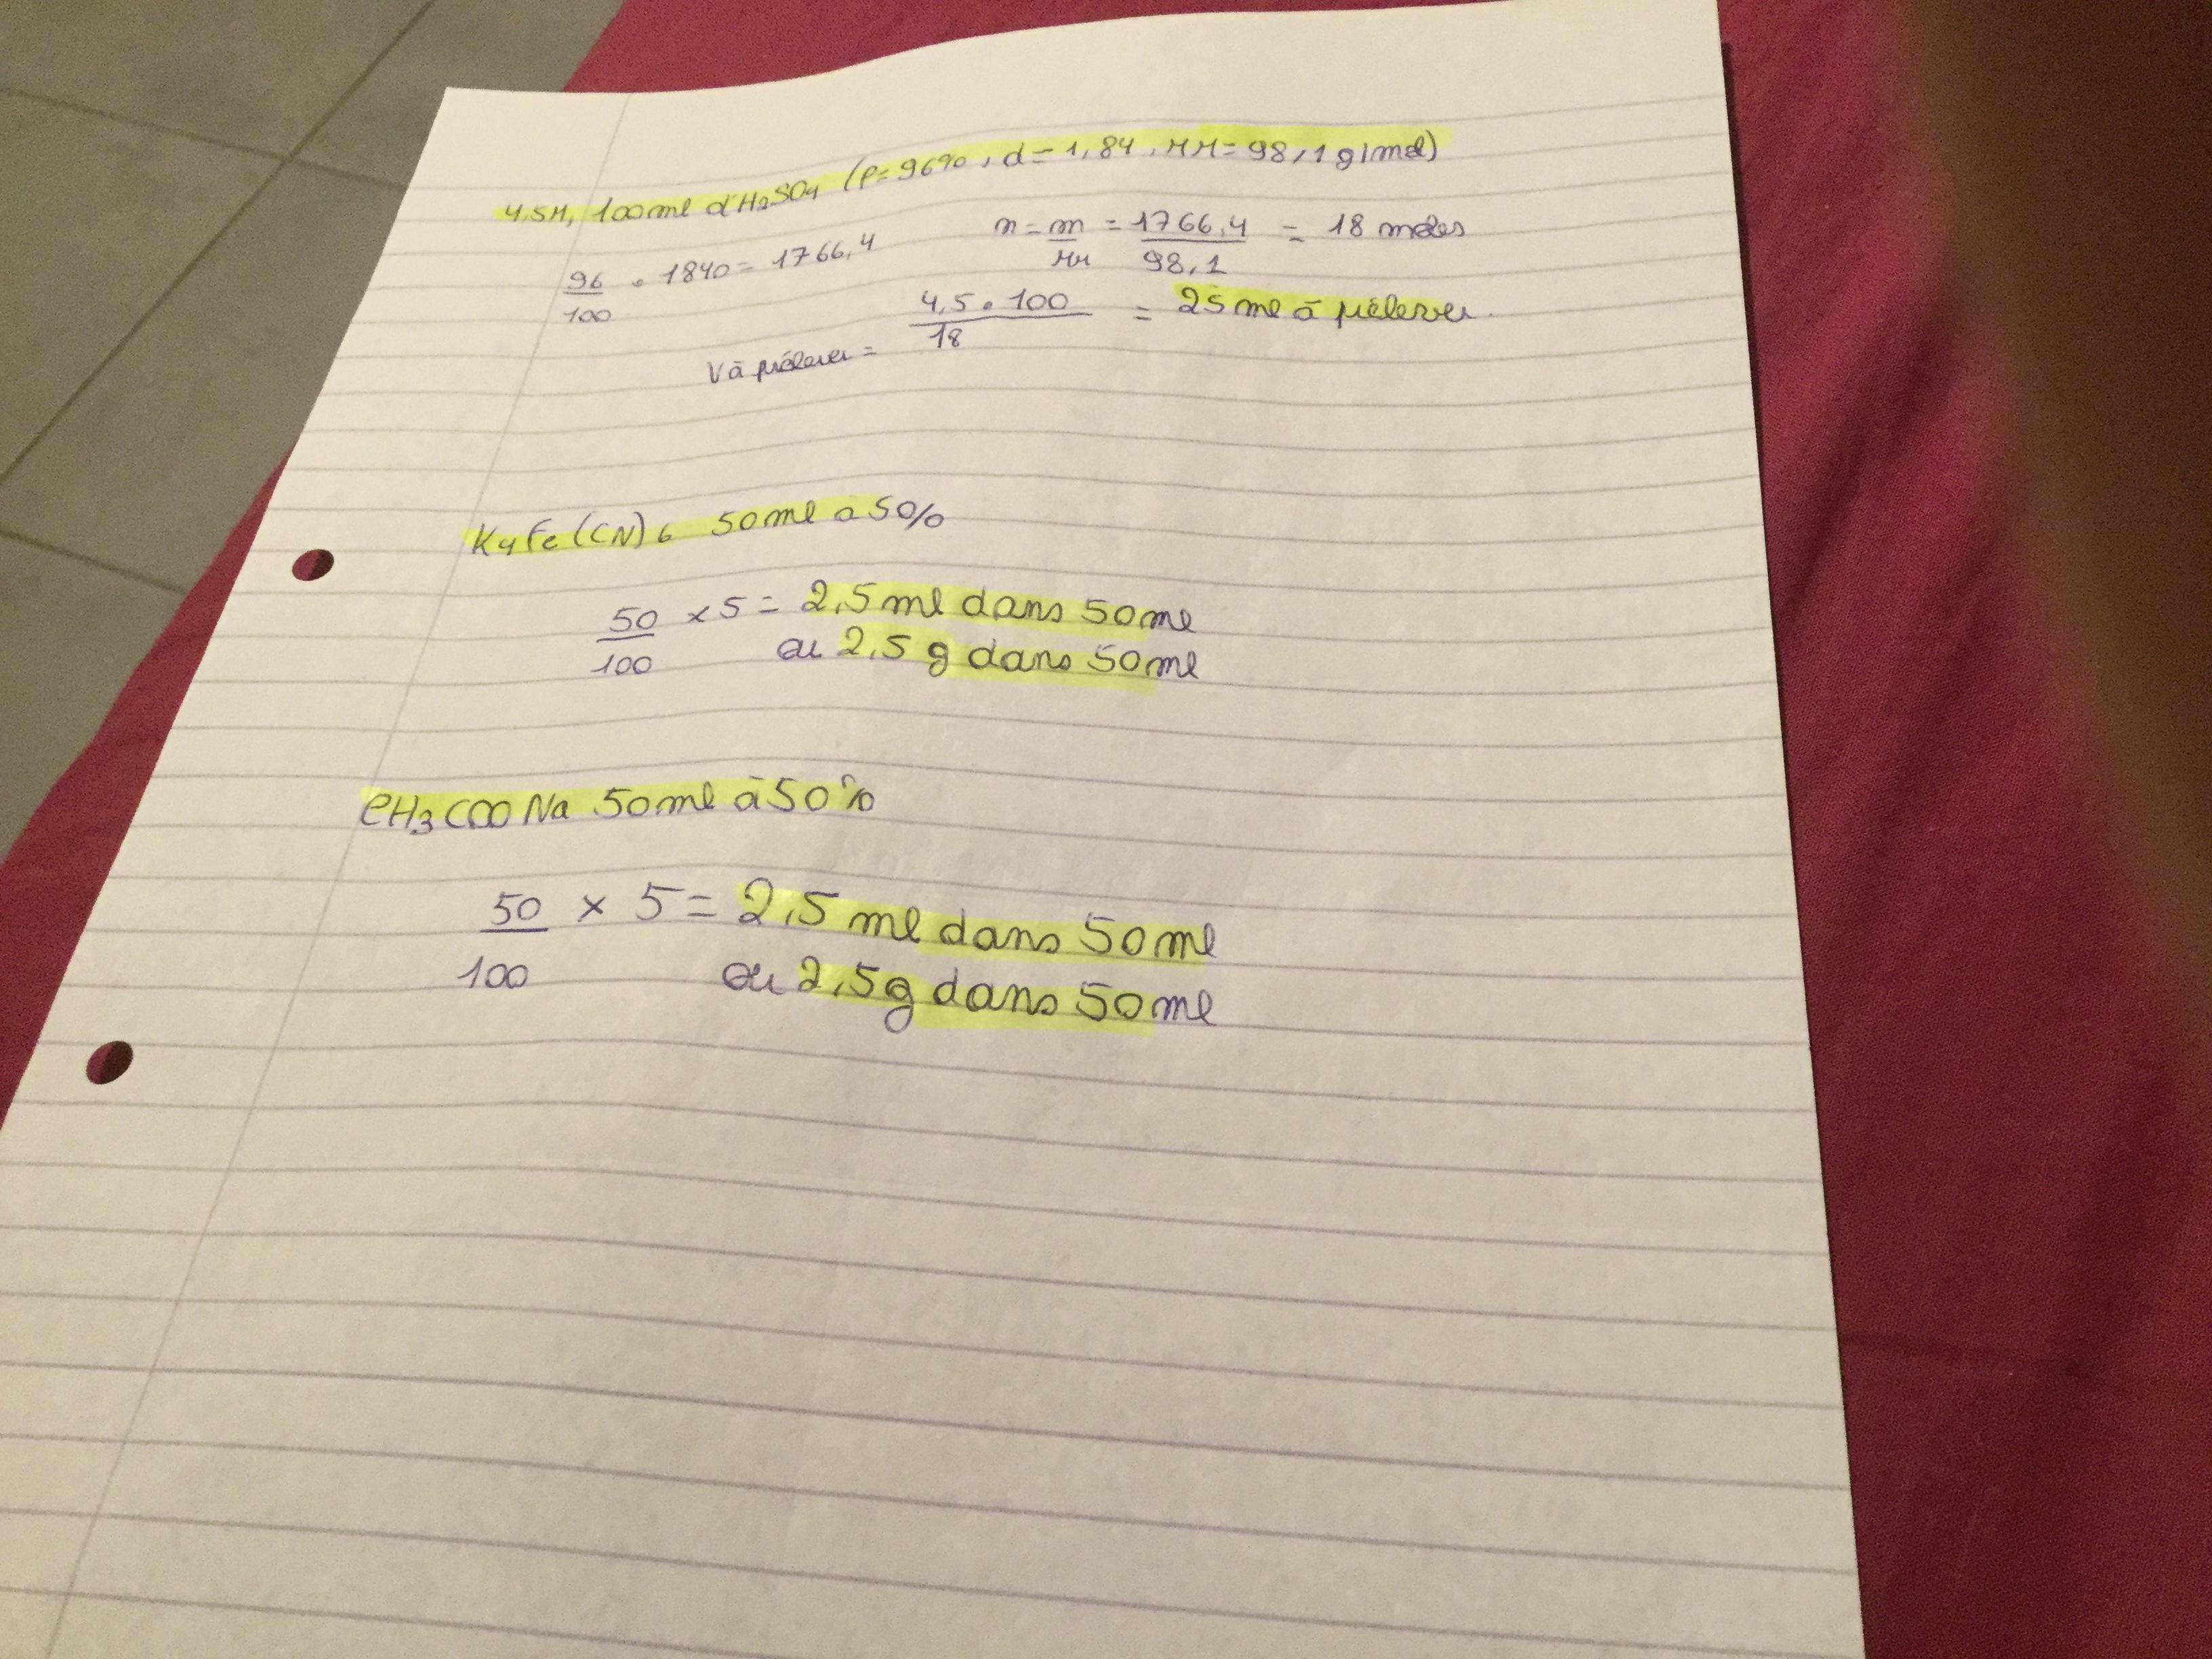 4,5M, 100ml d'H2SO4 (P=96%, d=1,84, MM=98,1g/mol)
96/100 • 1840 = 1766,4
n = m/MM = 1766,4/98,1 = 18 moles
V à prélever = 4,5 • 100/18 = 25 ml à prélever.
K4Fe(CN)6 50ml à 50%
50/100 x 5 = 2,5 ml dans 50ml
ou 2,5 g dans 50ml
CH3COONa 50ml à 50%
50/100 x 5 = 2,5 ml dans 50ml
ou 2,5g dans 50ml